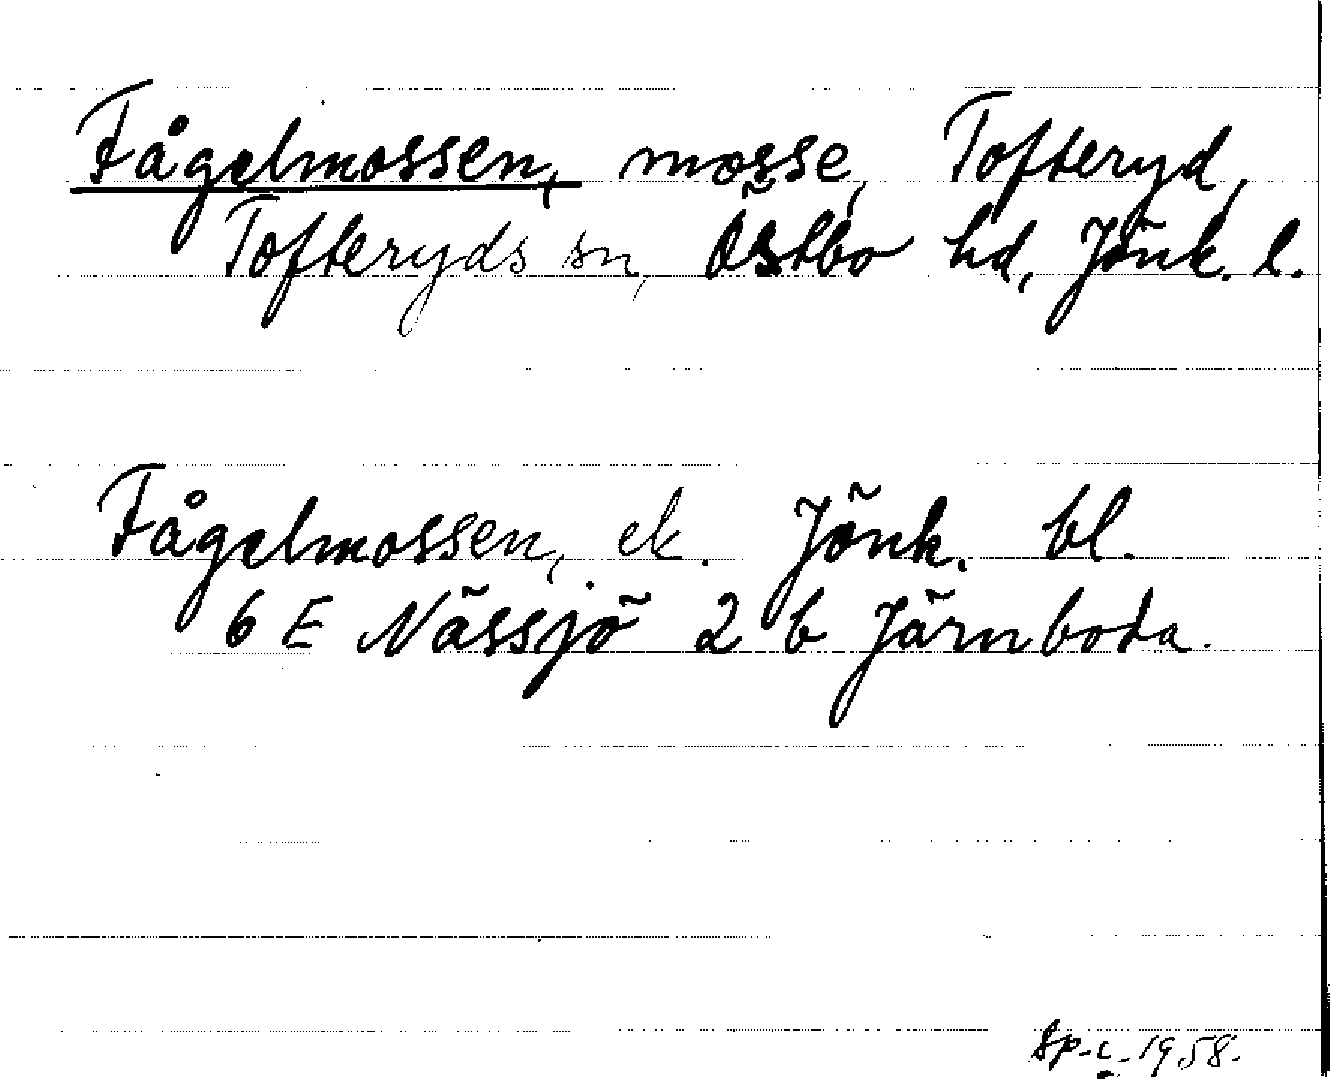 Fågelmossen, mosse, Tofteryd,
Tofteryds sn, Östbo hd, Jönk. l.
Fågelmossen, ek. Jönk. bl.
6 E Nässjö 2 b Järnboda.
Sp-c. 1958.